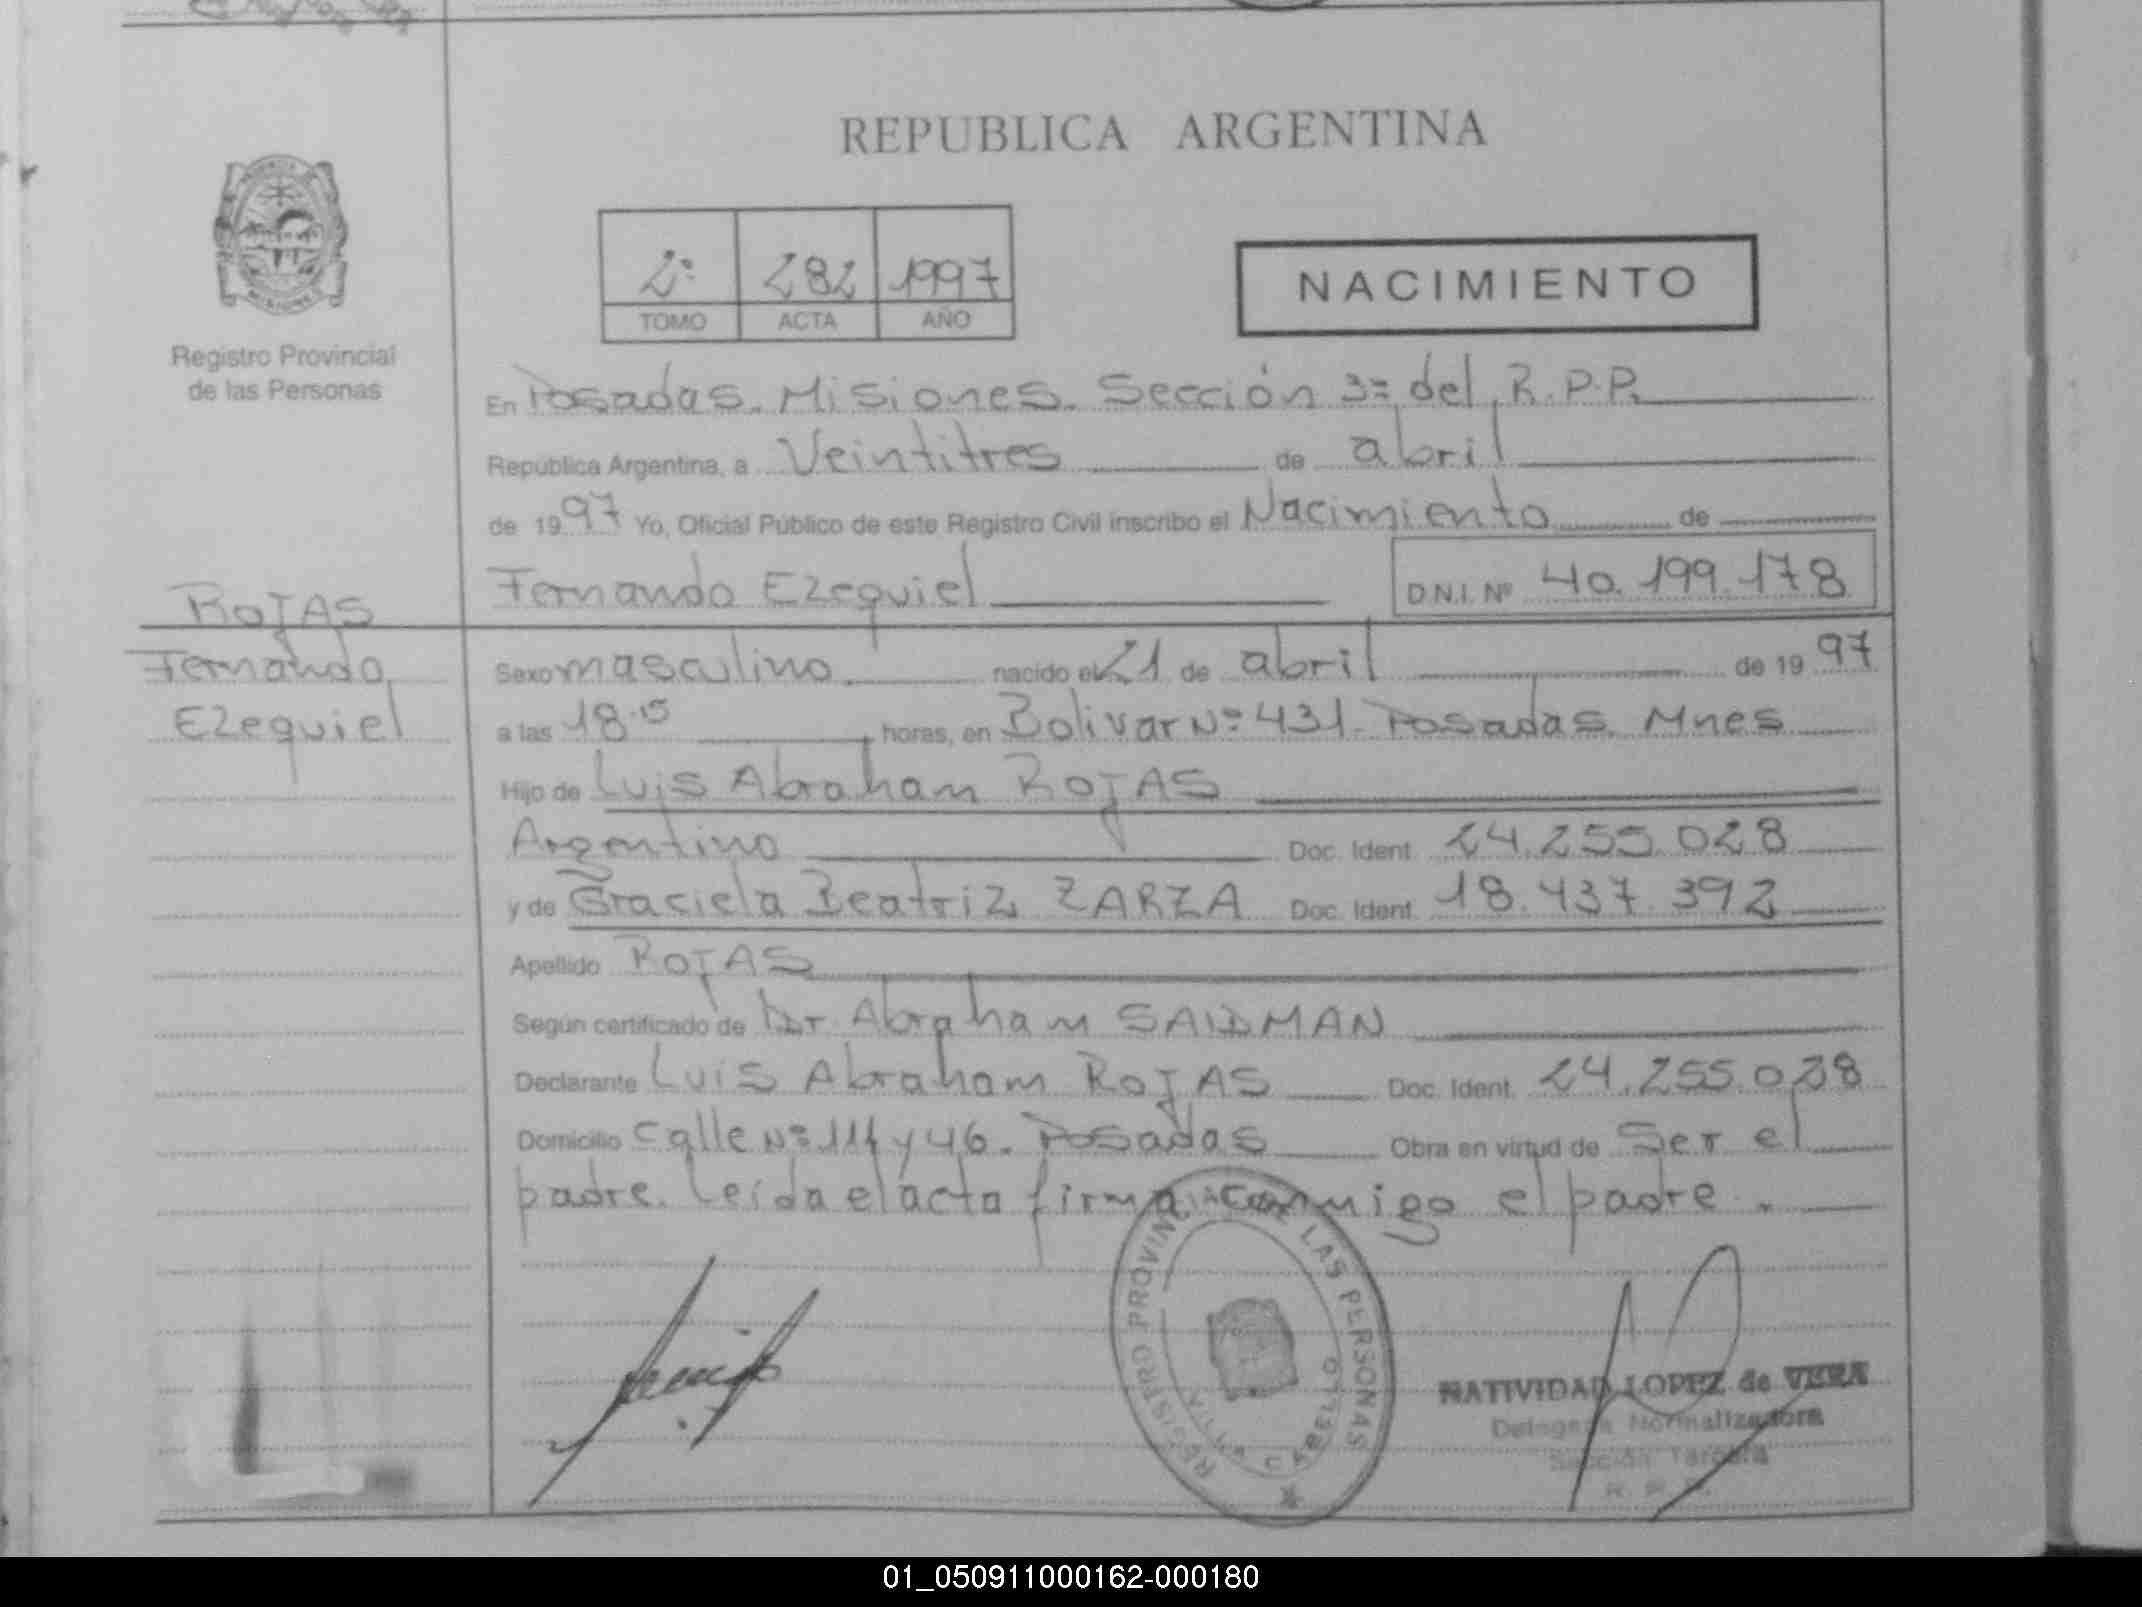 REPUBLICA ARGENTINA
2º 282 1997
TOMO ACTA AÑO
NACIMIENTO
Registro Provincial
de las Personas
En Posadas. Misiones. Sección 3= del R.P.P.
República Argentina, a Veintitres de abril
de 1997 Yo, Oficial Público de este Registro Civil inscribo el Nacimiento de
Fernando Ezequiel D.N.I. Nº 40.199.178
ROJAS
Fernando
Ezequiel
Sexo masculino. nacido el 21 de abril de 1997
a las 18.15 horas, en Bolivar Nº 431. Posadas. Mnes
Hijo de Luis Abraham ROJAS
Argentino Doc. Ident. 24.255.028
y de Graciela Beatriz ZARZA Doc. Ident. 18.437.392
Apellido ROJAS
Según certificado de Dr. Abraham SAIDMAN
Declarante Luis Abraham ROJAS Doc. Ident. 24.255.028
Domicilio Calle Nº y 46. Posadas Obra en virtud de Ser el
padre. Leída el acta firma conmigo el padre.
REGISTRO PROVINCIAL DE LAS PERSONAS
VILLA CABELLO
NATIVIDAD LOPEZ de VERA
Delegada Normalizadora
Sección Tercera
R. P. P.
01_050911000162-000180